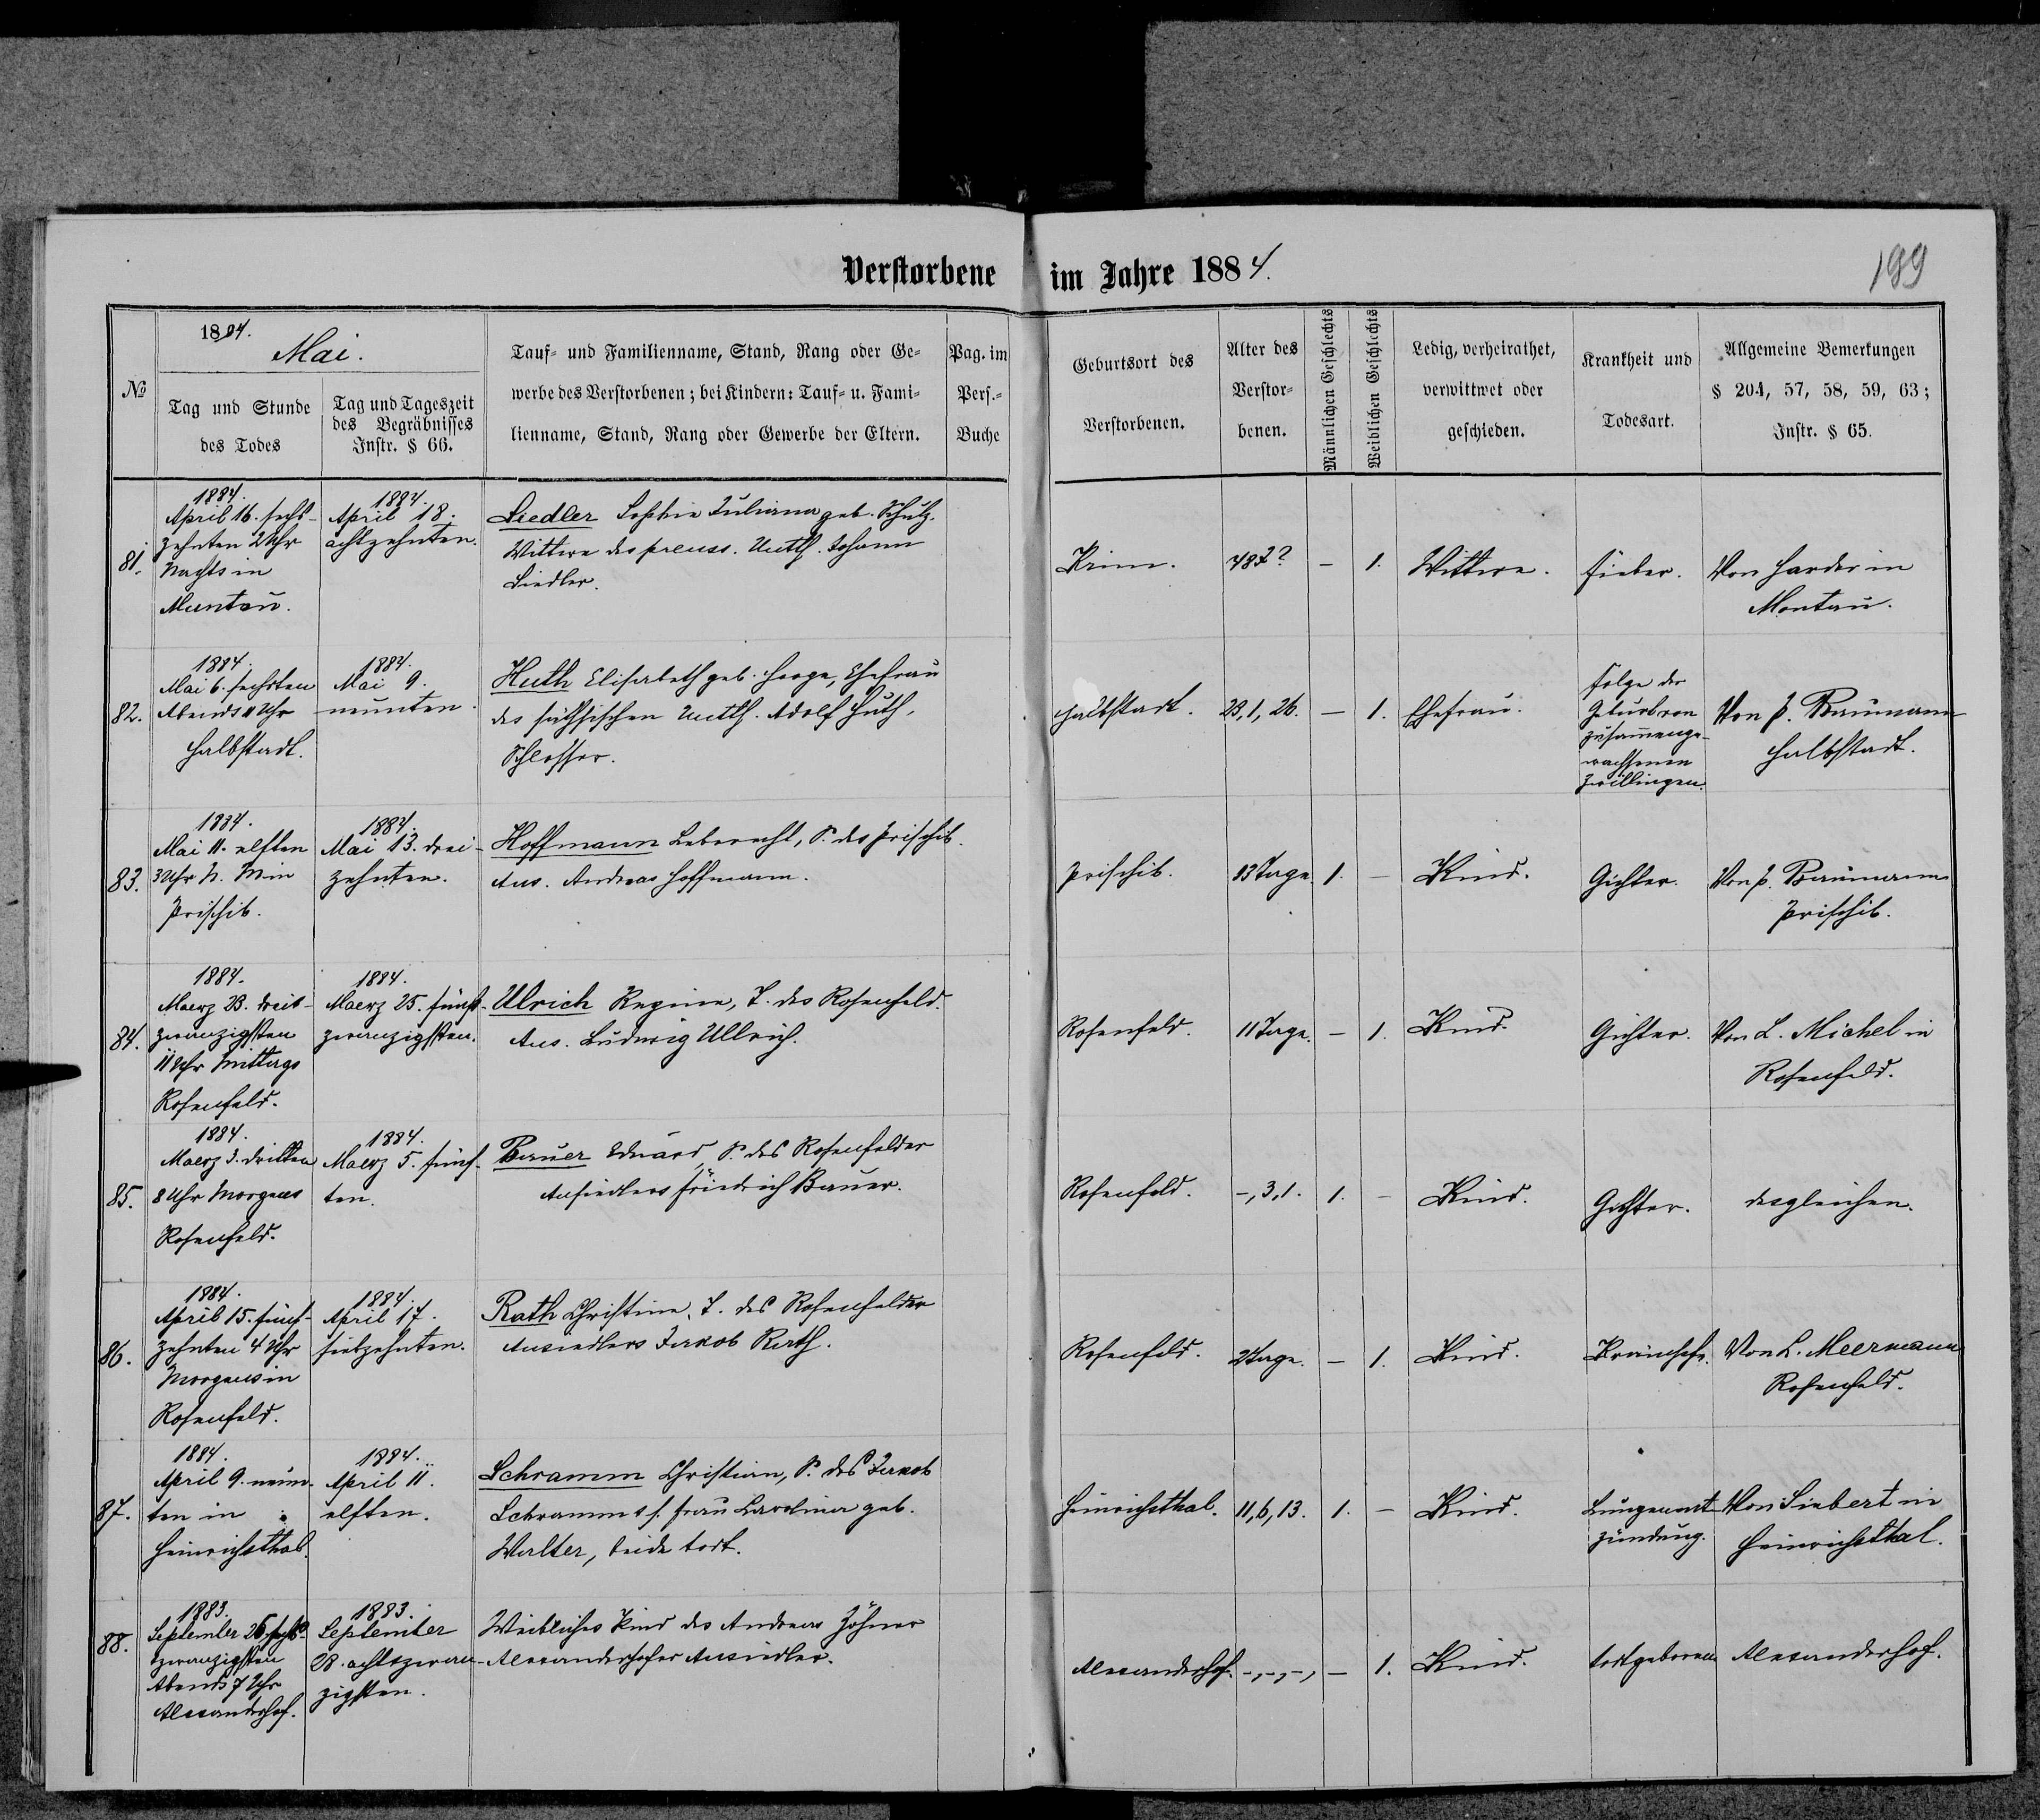 Verstorbene im Jahre 1884.
199
№
1884.
Mai.
Tag und Stunde
des Todes
Tag und Tageszeit
des Begräbnisses
Instr. § 66.
Tauf- und Familienname, Stand, Rang oder Ge-
werbe des Verstorbenen; bei Kindern: Tauf- u. Fami-
lienname, Stand, Rang oder Gewerbe der Eltern.
Pag. im
Pers.-
Buche
Geburtsort des
Verstorbenen.
Alter des
Verstor-
benen.
Männlichen Geschlechts
Weiblichen Geschlechts
Ledig, verheirathet,
verwittwet oder
geschieden.
Krankheit und
Todesart.
Allgemeine Bemerkungen
§ 204, 57, 58, 59, 63;
Instr. § 65.
81.
1884.
April 16. sechs-
zehnten 2 Uhr
Nachts in
Muntau.
1884.
April 18.
achtzehnten.
Liedler Sophie Juliana geb. Schulz.
Wittwe des preuss. Unth. Johann
Liedler.
Krim.
48 J?
–
1.
Wittwe.
Fieber.
Von Harder in
Montau.
82.
1884.
Mai 6. sechsten
Abends 11 Uhr
Halbstadt.
1884.
Mai 9.
neunten.
Huth Elisabeth geb. Hooge, Ehefrau
des sächsischen Unth. Adolf Huth,
Schlosser.
Halbstadt.
23, 1, 26.
–
1.
Ehefrau.
Folge der
Geburt von
zusammenge-
wachsenen
Zwillingen.
Von P. Baumann
Halbstadt.
83.
1884.
Mai 11. elften
3 Uhr N. M in
Prischib.
1884.
Mai 13. drei-
zehnten.
Hoffmann Leberecht, S. des Prischib.
Ans. Andreas Hoffmann.
Prischib.
13 Tage.
1.
–
Kind.
Gichter.
Von P. Baumann
Prischib.
84.
1884.
Maerz 23. drei-
zwanzigsten
11 Uhr Mittags
Rosenfeld.
1884.
Maerz 25. fünf-
zwanzigsten.
Ulrich Regine, T. des Rosenfeld.
Ans. Ludwig Ullrich.
Rosenfeld.
11 Tage.
–
1.
Kind.
Gichter.
Von L. Michel in
Rosenfeld.
85.
1884.
Maerz 3. dritten
8 Uhr Morgens
Rosenfeld.
1884.
Maerz 5. fünf-
ten.
Bauer Eduard, S. des Rosenfelder
Ansiedlers Friedrich Bauer.
Rosenfeld.
–, 3, 1.
1.
–
Kind.
Gichter.
desgleichen.
86.
1884.
April 15. fünf-
zehnten 4 Uhr
Morgens in
Rosenfeld.
1884.
April 17.
siebzehnten.
Rath Christine, T. des Rosenfelder
Ansiedlers Jakob Rath.
Rosenfeld.
2 Tage.
–
1.
Kind.
Von L. Meermann
Rosenfeld.
87.
1884.
April 9. neun-
ten in
Heinrichsthal.
1884.
April 11.
elften.
Schramm Christian, S. des Jakob
Schramm u s. Frau Carolina geb.
Walter, beide todt.
Heinrichsthal.
11, 6, 13.
1.
–
Kind.
Lungenent-
zündung.
Von Siebert in
Heinrichsthal.
88.
1883.
September 26. sechs-
zwanzigsten
Abends 7 Uhr
Alexanderhof.
1883.
September
28. achtzwan-
zigsten.
Weibliches Kind des Andreas Zöhner
Alexanderhofer Ansiedler.
Alexanderhof.
–, –, –,
–
1.
Kind.
todtgeboren
Alexanderhof.